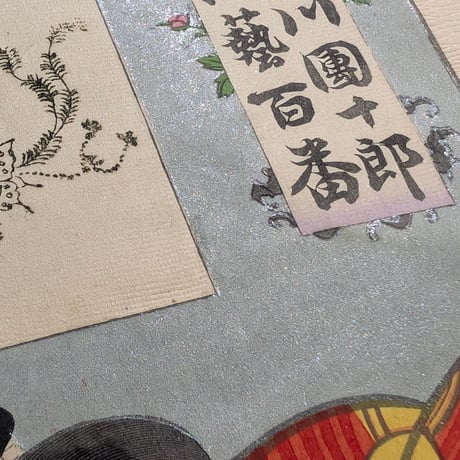 川團十郎
藝百番